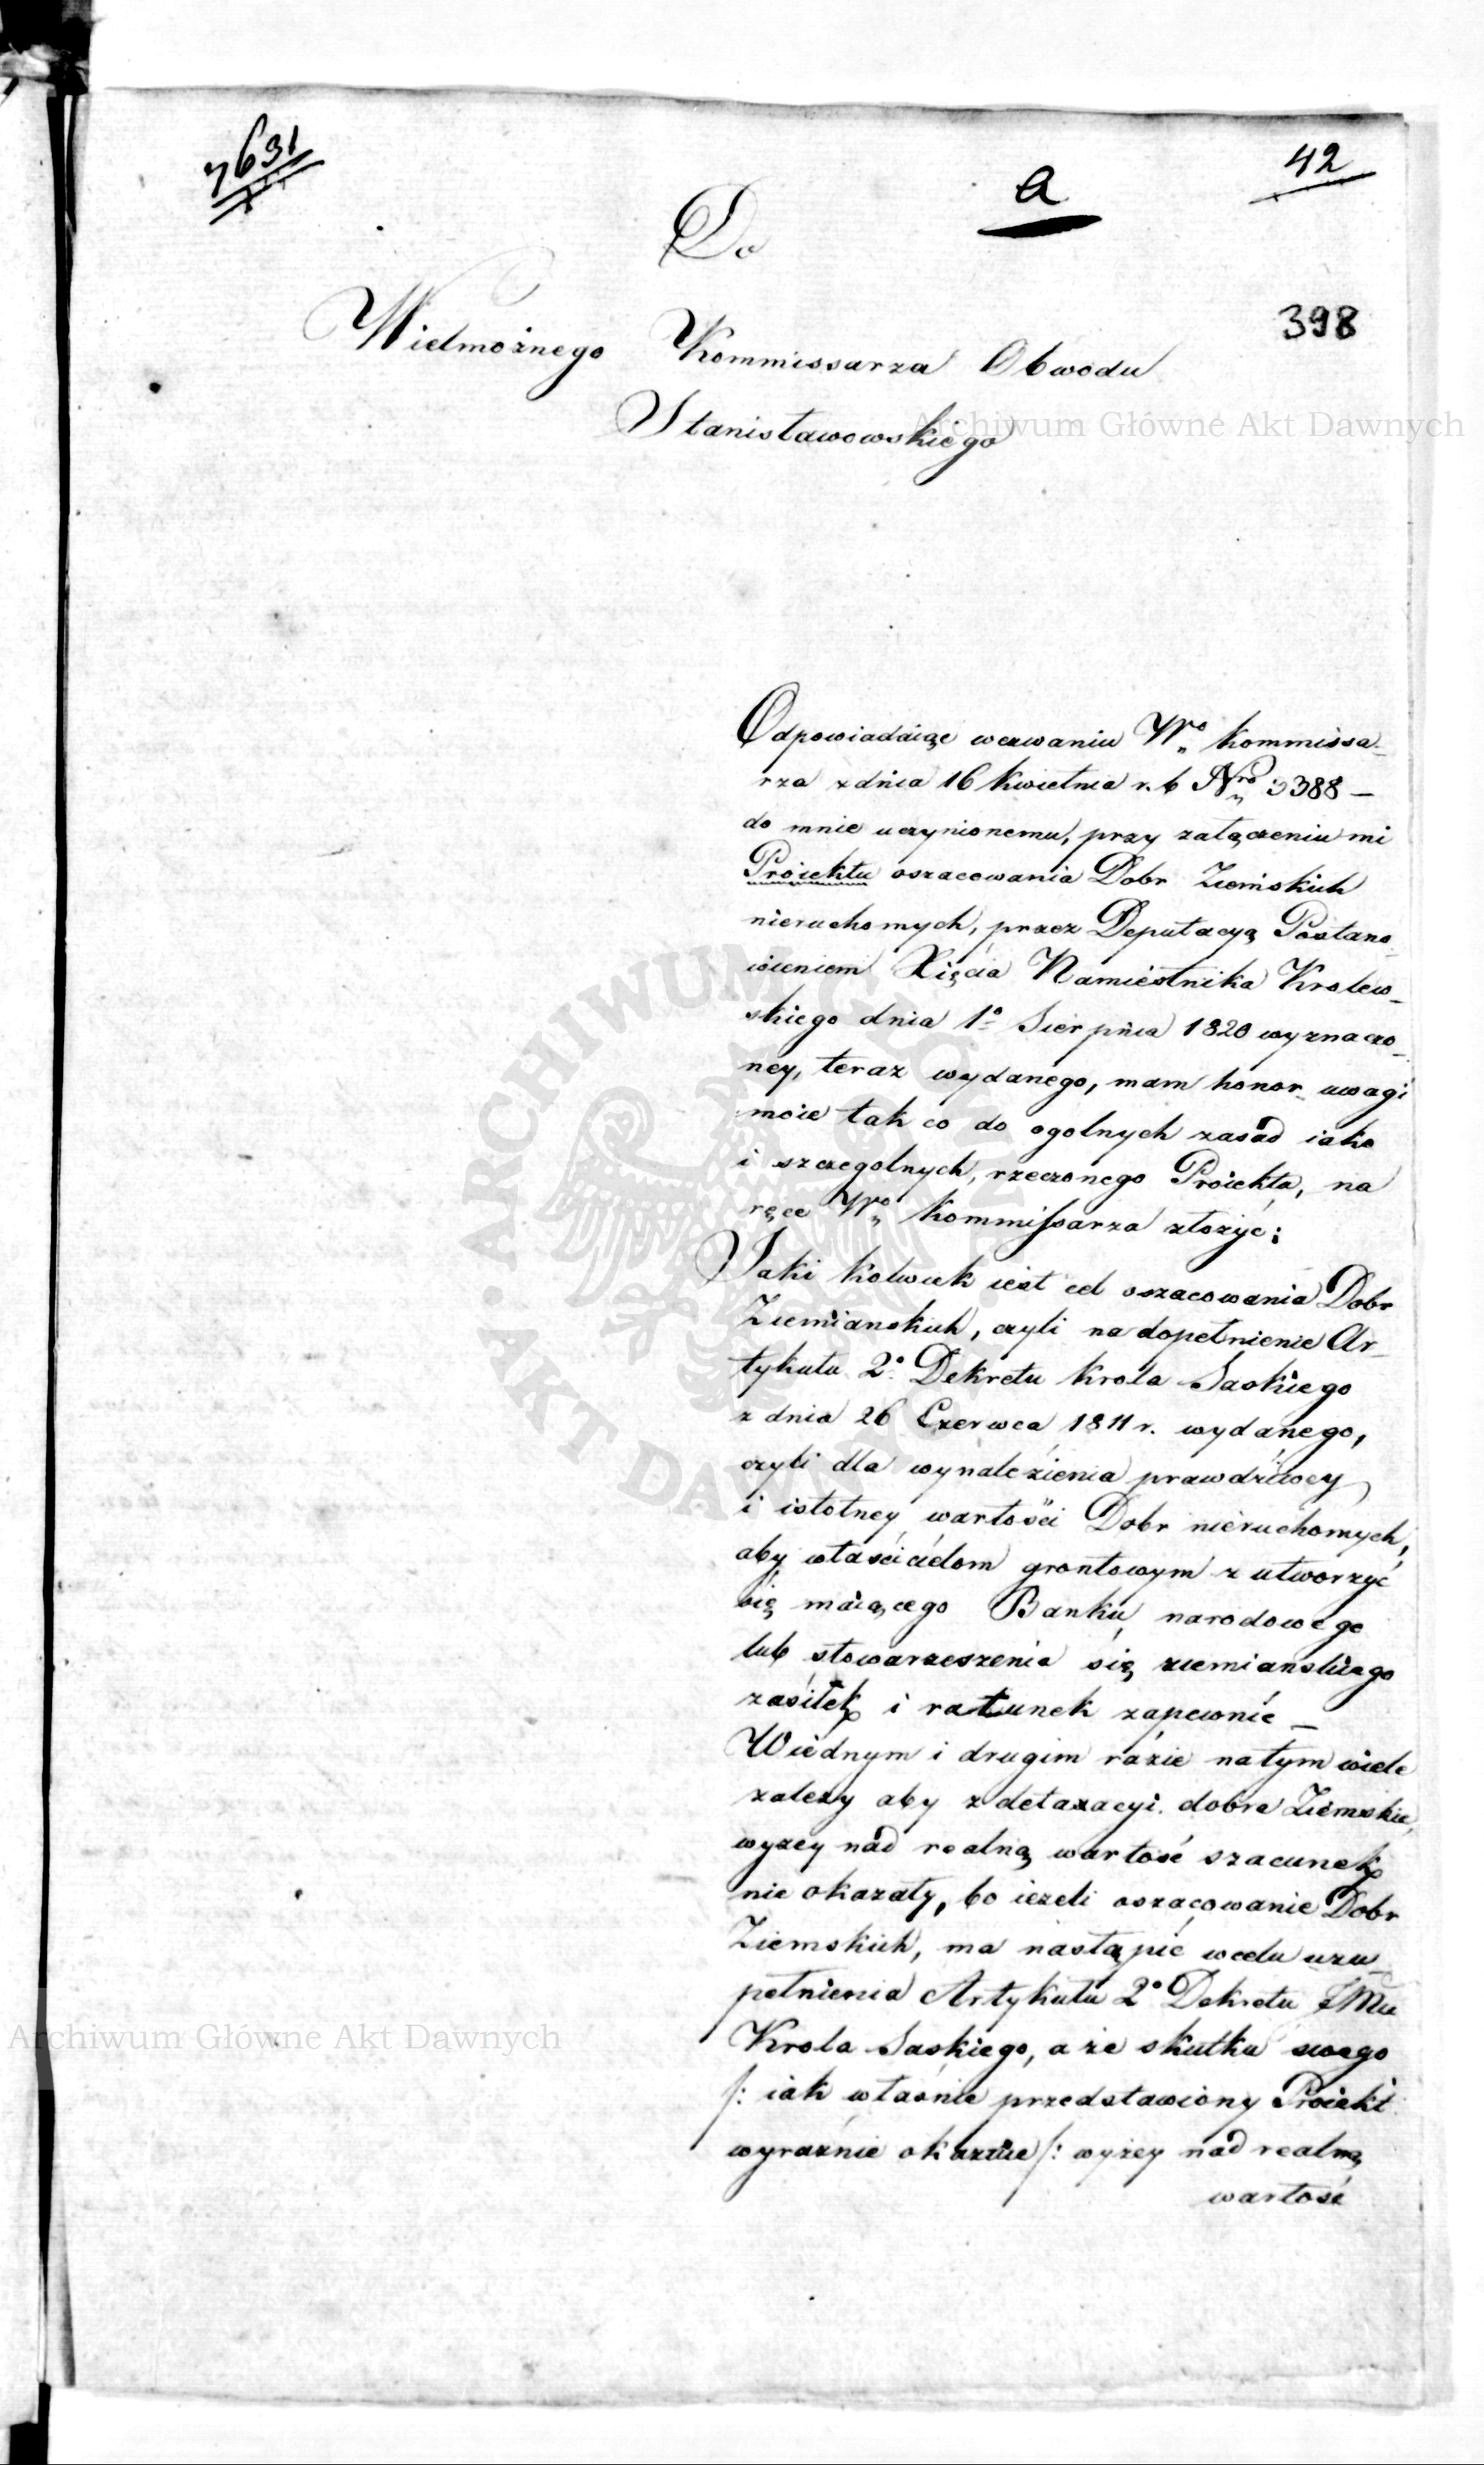 7631
42
a
Do
398
Wielmożnego Kommissarza Obwodu
Stanisławowskiego
Archiwum Główne Akt Dawnych
Odpowiadaiąc wezwaniu Wo Kommissa-
rza z dnia 16 Kwietnia r. b Nro 3388 –
do mnie uczynionemu, przy załączeniu mi
Proiektu oszacowania Dobr Ziemskich
nieruchomych, przez Deputacyą Postano-
wieniem Xięcia Namiestnika Krolew-
skiego dnia 1o Sierpnia 1820 wyznaczo-
ney, teraz wydanego, mam honor uwagi
moie tak co do ogolnych zasad iako
i szczegolnych, rzeczonego Proiekta, na
ręce Wo Kommissarza złożyć:
Jaki kolwiek iest cel oszacowania Dobr
Ziemianskich, czyli na dopełnienie Ar-
tykułu 2o Dekretu Krola Saskiego
z dnia 26 Czerwca 1811 r. wydanego,
czyli dla wynalezienia prawdziwey
i istotney wartości Dobr nieruchomych,
aby właścicielom grontowym z utworzyć
się maiącego Banku narodowego
lub stowarzeszenia się ziemianskiego
zasiłek i ratunek zapewnić –
W iednym i drugim razie na tym wiele
zależy aby z detaxacyi dobra Ziemskie,
wyzey nad realną wartość szacunek
nie okazały, bo ieżeli oszacowanie Dobr
Ziemskich, ma nastąpić w celu uzu-
pełnienia Artykułu 2o Dekretu
Krola Saskiego, a że skutku swego
/: iak właśnie przedstawiony Proiekt
wyraznie okazuie /: wyżey nad realną
wartość
Archiwum Główne Akt Dawnych
ARCHIWUM GŁÓWNE AKT DAWNYCH